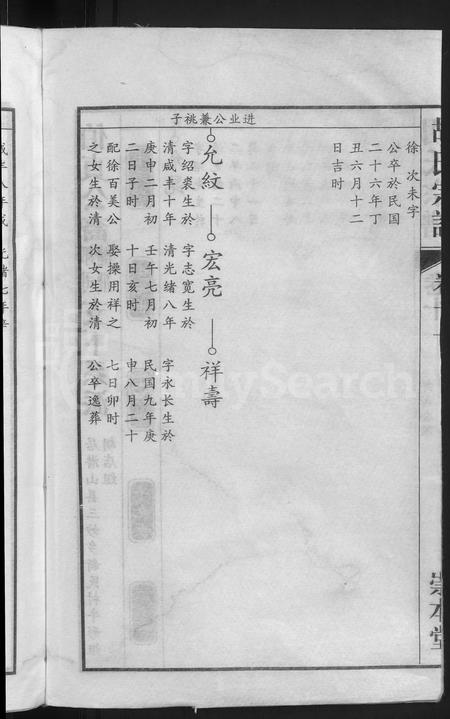 胡氏宗譜
崇本堂
徐　次未字
公卒於民国
二十六年丁
丑六月十二
日吉时
进业公兼祧子
允紋
字绍裘生於
清咸丰十年
庚申二月初
二日子时
配徐百美公
之女生於清
宏亮
字志宽生於
清光绪八年
壬午七月初
十日亥时
娶操用祥之
次女生於清
祥壽
字永长生於
民国九年庚
申八月二十
七日卯时
公卒逸葬